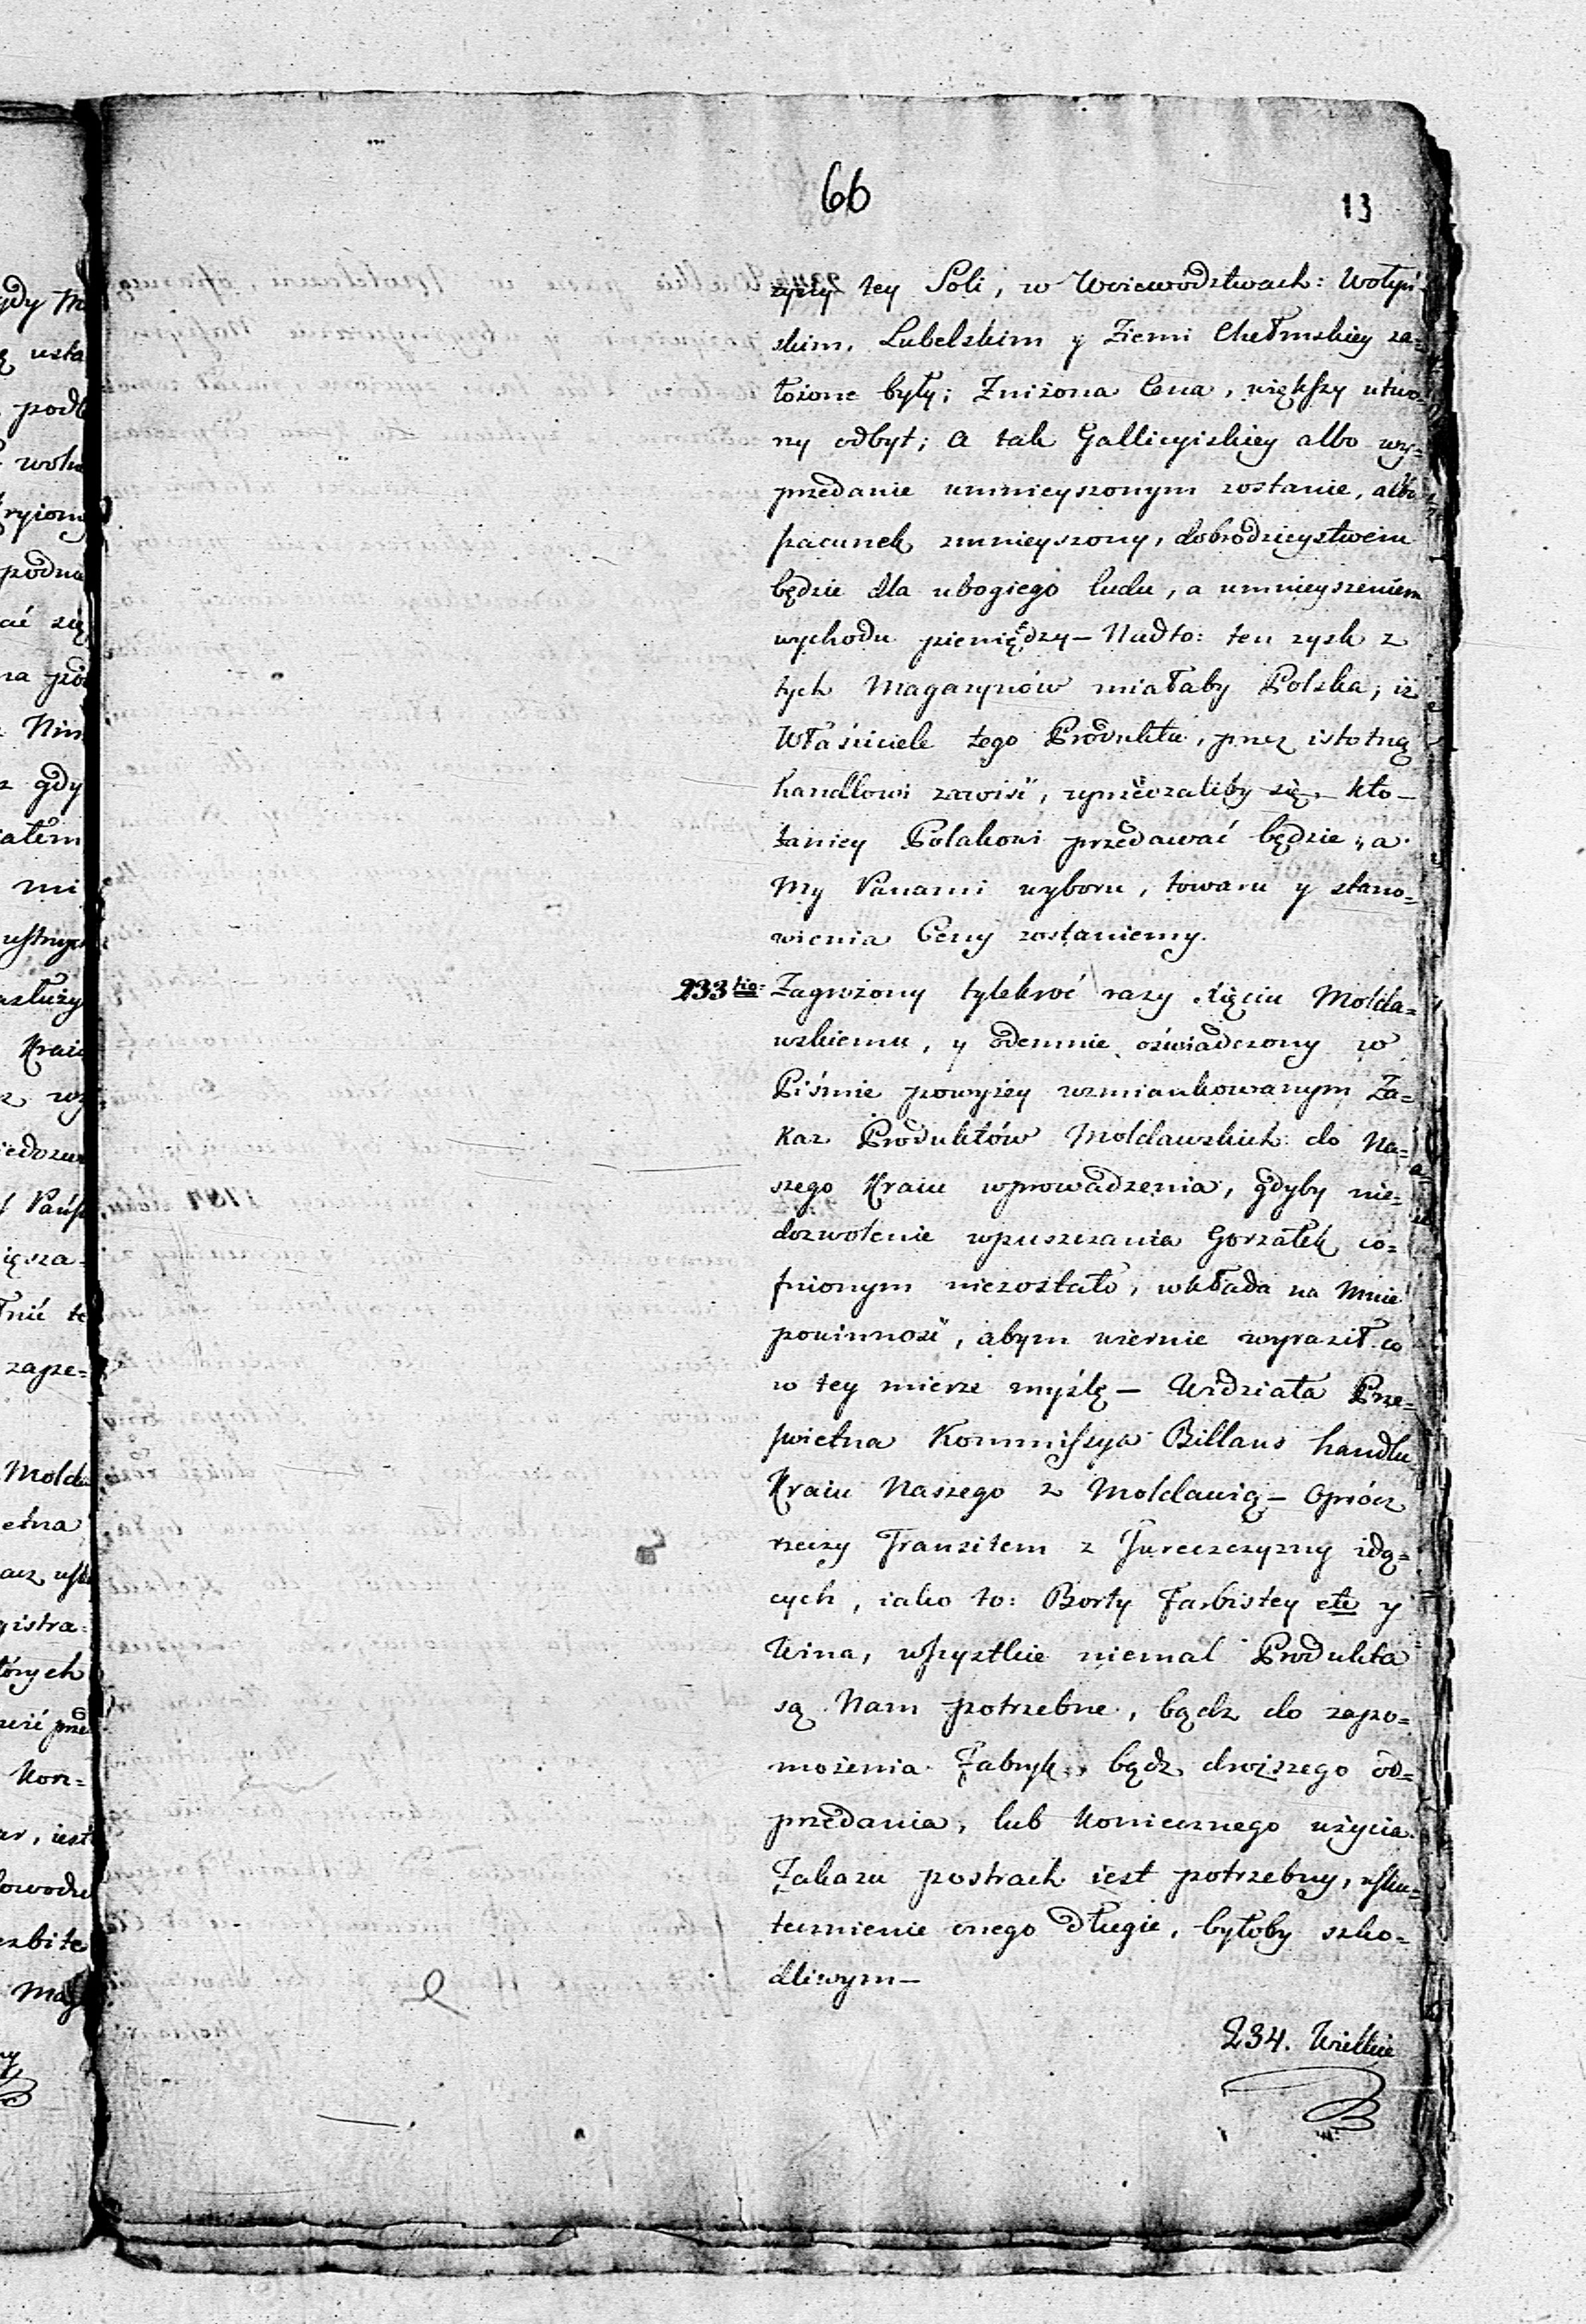 66
13
zyny tey Soli, w Woiewodztwach: Wołyń=
skim, Lubelskim y Ziemi Chełmskiey za=
łożone były; Zniżona Cena, większy utwo=
rzy odbyt; a tak Gallicyiskiey albo wy=
przedanie umnieyszonym zostanie, albo
szacunek zmnieyszony, dobrodzieystwem
będzie dla ubogiego ludu, a umnieyszeniem
wychodu pieniędzy — Nadto: ten zysk z
tych Magazynów miałaby Polska, iż
Właściciele tego Produktu, przez istotną
handlowi zawiść, uprzedzaliby się, kto
taniey Polakowi przedawać będzie, a
My Panami wyboru, towaru y stano=
wienia Ceny zostaniemy.
233tio= Zagrożony tylekroć razy Xięciu Molda=
wskiemu, y odemnie oświadczony w
Piśmie powyżey wzmiankowanym Za=
kaz Produktów Moldawskich do Na=
szego Kraiu wprowadzenia, gdyby nie=
dozwolenie wpuszczania Gorzałek co=
fnionym niezostało, wkłada na Mnie
powinność, abym wiernie wyraził co
w tey mierze myślę — Widziała Prze=
świetna Kommissya Billans handlu
Kraiu Naszego z Moldawią — Oprócz
rzeczy Tranzitem z Tureczczyzny idą=
cych, iako to: Borty Farbistey etc y
Wina, wszystkie niemal Produkta
są Nam potrzebne, bądz do zapo=
możenia Fabryk, bądz droższego od=
przedania, lub koniecznego użycia.
Zakazu postrach iest potrzebny, usku=
tecznienie onego długie, byłoby szko=
dliwym —
234. Wielkie